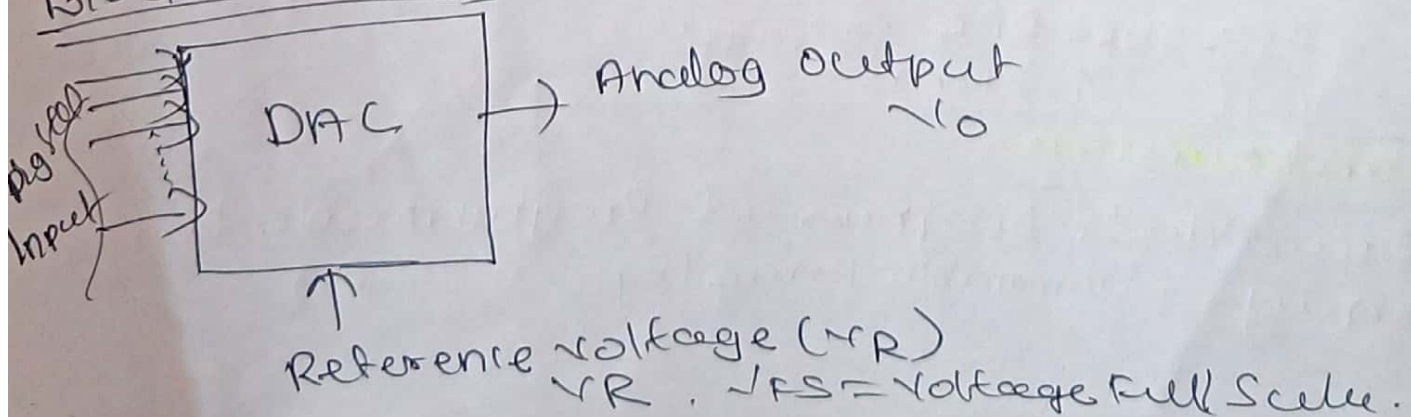 Digital
Input
DAC
Analog Output
Vo
Reference Voltage (VR)
VR. VFS = Voltage Full Scale.